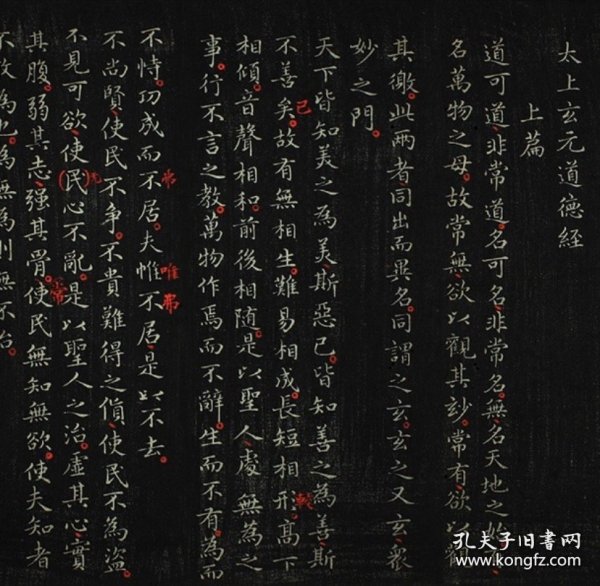 太上玄元道德經
上篇
道可道。非常道。名可名。非常名。無名天地之
名萬物之母。故常無欲以觀其妙。常有欲以
其徼。此兩者同出而異名。同謂之玄。玄之又玄。衆
妙之門。
天下皆知美之為美。斯惡已。皆知善之為善。斯
己
不善矣。故有無相生。難易相成。長短相形。高下
相傾。音聲相和。前後相隨。是以聖人處無為之
事。行不言之教。萬物作焉而不辭。生而不有。為而
不恃。功成而不居。夫惟不居。是以不去。
唯弗
不尚賢。使民不争。不貴難得之貨。使民不為盜。
不見可欲。使(民)心不亂。是以聖人之治。虛其心。實
其腹。弱其志。強其骨。使民無知無欲。使夫知者
不敢為也。為無為則無不治。
孔夫子旧书网
www.kongfz.com